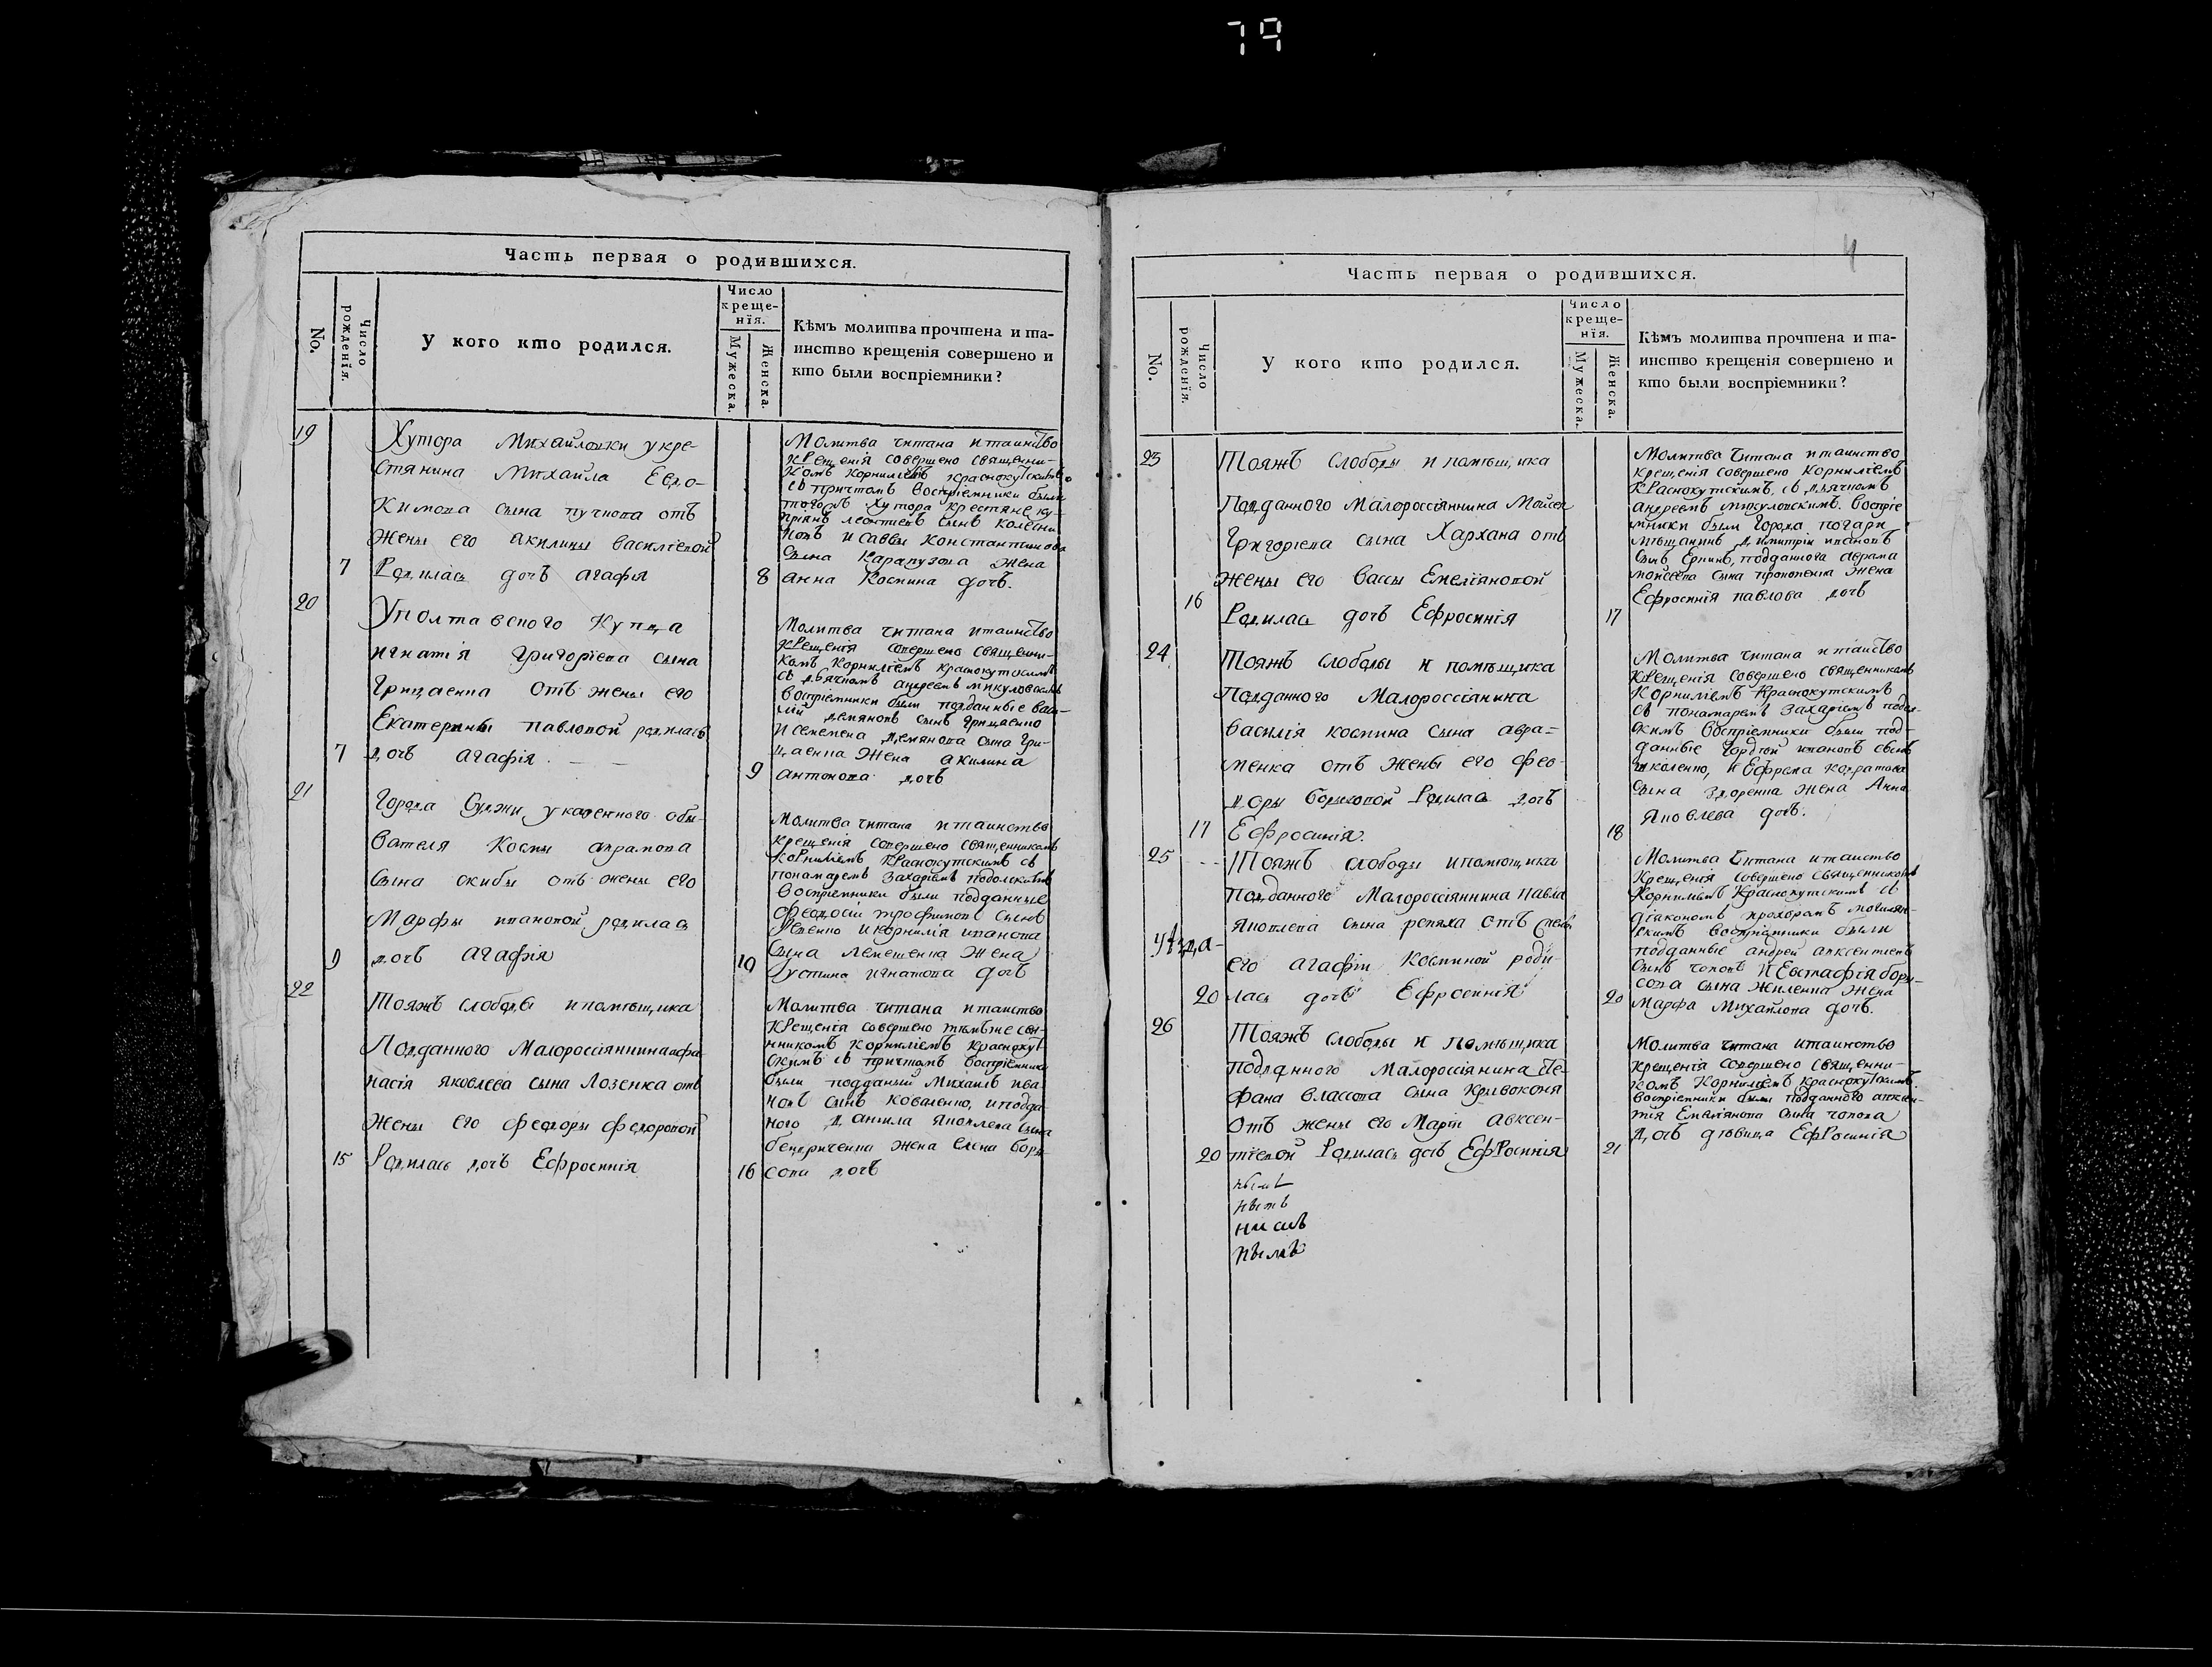 79
Часть первая о родившихся.
No.
Число рожденїя.
У кого кто родился.
Число
креще-
нїя.
Мужеска.
Женска.
Кѣмъ молитва прочтена и та-
инство крещенія совершено и
кто были воспріемники?
19
Хутора Михайловки у кре-
стянина Михайла Евдо-
Кимова сына пучнова отъ
жены его Акилины василіевой
7 Родилась дочь агафія 8
Молитва читана и таинство
крещенія совершено священни-
комъ Корниліемъ Краснокутскимъ
съ притчомъ воспріемники были
тогожъ Хутора крестяне ку-
пріянъ леонтіевъ сынъ колесни
ковъ и саввы константинова
сына Карапузова жена
анна Космина дочь.
20
У полтавского Купца
игнатія Григоріева сына
Грицаенка отъ жены его
Екатерины павловой родилась
7 дочь агафія 9
Молитва читана и таинство
крещенія совершено священни-
комъ Корниліемъ краснокутскимъ
съ дьячкомъ андреемъ микуловскимъ
воспріемники были подданные васи-
лій демяновъ сынъ грицаенко
и семена демянова сына гри-
цаенка жена акилина
антонова дочь
21
Города Суджи, у казенного обы-
вателя Космы аврамова
Сына скибы отъ жены его
Марфы ивановой родилась
9 дочь агафія 10
Молитва читана и таинство
крещенія совершено священникомъ
корниліемъ Краснокутскимъ съ
понамаремъ захаріемъ подолскимъ
воспріемники были подданные
федосій трофимовъ сынъ
и корнилія иванова
сына лемешенка жена
Іустина игнатова дочь
22
Тояжъ слободы и помѣщика
Подданного Малороссіянина афа
насія яковлева сына Лозенка отъ
жены его феодоры федоровой
15 Родилась дочь Ефросинія 16
Молитва читана и таинство
крещенія совершено темъже свя-
щникомъ корниліемъ Краснокут
скимъ съ притчомъ воспріемники
были подданый Михаилъ ива
новъ сынъ коваленко, и подда
ного данила яковлева сына
жена елена бори
сова дочь
4
Часть первая о родившихся.
No.
Число рожденїя.
У кого кто родился.
Число
креще-
нїя.
Мужеска.
Женска.
Кѣмъ молитва прочтена и та-
инство крещенія совершено и
кто были воспріемники?
23
Тояжъ слободы и помѣщика
Подданного Малороссіянина Мойсея
Григоріева сына Хархана отъ
жены его вассы Емеліяновой
16 Родилась дочь Ефросинія 17
Молитва читана и таинство
крещенія совершено Корниліемъ
Краснокутскимъ, съ дьячкомъ
андреемъ микуловскимъ. Воспріе
мники были Города погари
мѣщанинъ димитрій ивановъ
сынъ подданного аврама
мойсеева сына прокопенка жена
Ефросинія павлова дочь
24
Тояжъ слободы и помѣщика
Подданного Малороссіянина
василія космина сына авра=
менка отъ жены его фео-
доры борисовой Родилась дочь
17 Ефросинія. 18
Молитва читана и таиство
крещенія совершено священникомъ
Корниліемъ Краснокутскимъ
съ понамаремъ захаріемъ подол-
скимъ воспріемники были под-
данные Гордѣй ивановъ сынъ
школенко, и Ефрема кодратова
сына здоренка жена Анна
Яковлева дочь.
25
Тояжъ слободы и помѣщика
подданного Малороссіянина павла
яковлева сына репяха отъ жены
его агафіи Косминой роди-
20 лась дочь Ефросинія 20
Молитва читана и таиство
крещенія совершено священникомъ
Корниліемъ Краснокутскимъ съ
діякономъ прохоромъ
скимъ воспріемники были
подданные андрей авксентіевъ
сынъ чоповъ и Евстафія бори-
сова сына жиленка жена
марфа михайлова дочь.
26
Тояжъ слободы и помѣщика
подданного Малороссіянина Сте-
фана власова сына Кривоконя
отъ жены его Марѳи авксен-
20 тіевой Родилась дочь ЕфРосинія 21
Молитва читана и таинство
крещенія совершено священни-
комъ Корниліемъ краснокутскимъ.
воспріемники были подданного авксен-
тія Емеліянова сына чопова
дочь дѣвица ЕфРосинія